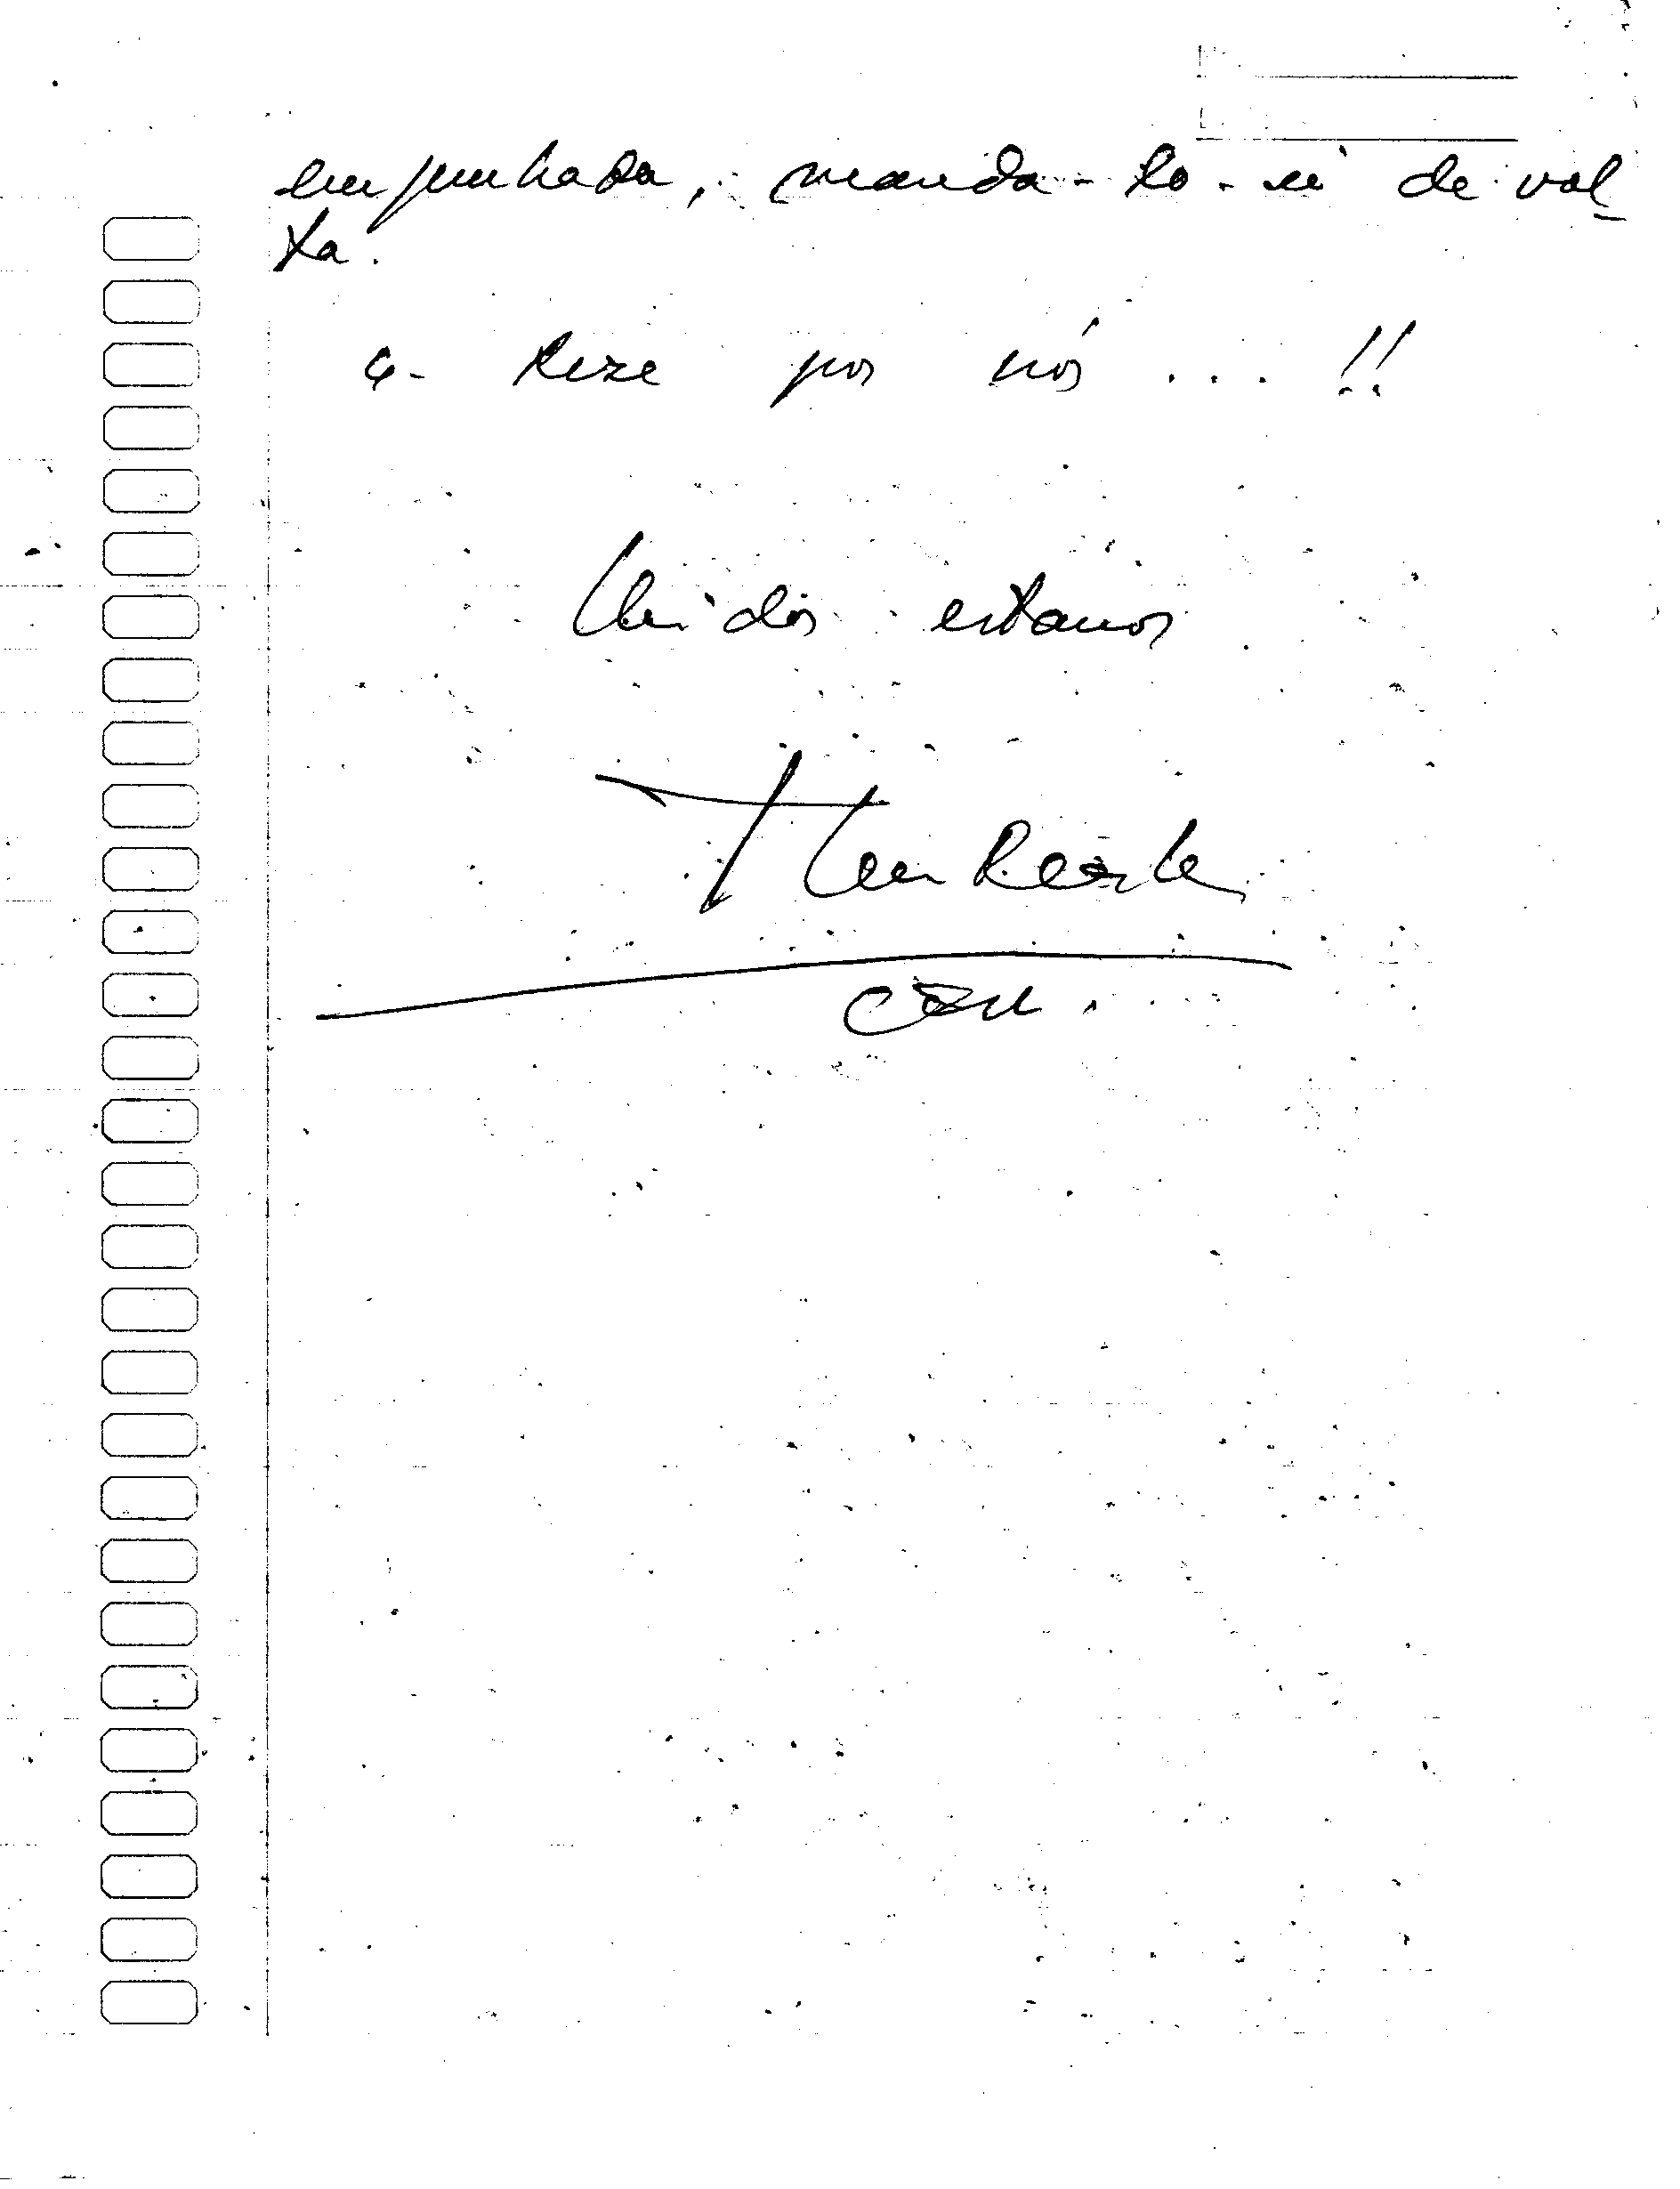 empenhada, manda-lo-ei de vol
ta.
4- Reze por nós ... !!
Unidos estamos